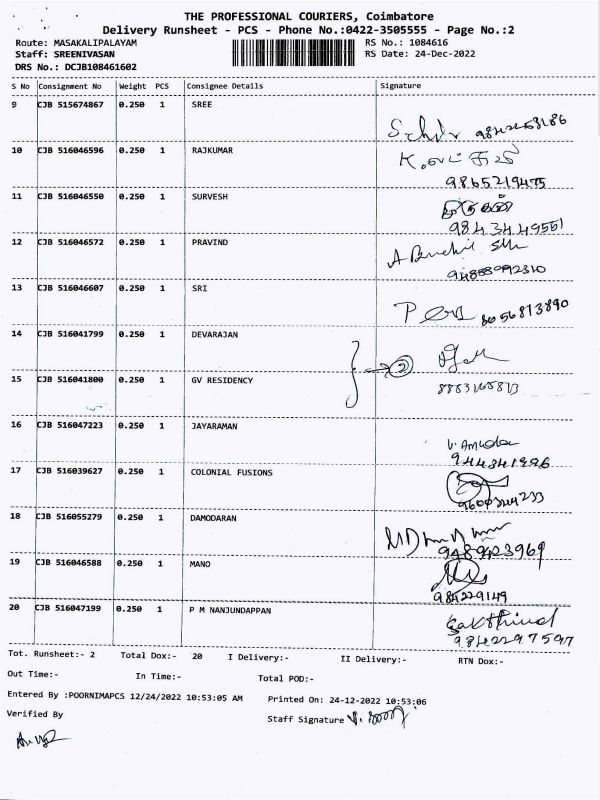 THE PROFESSIONAL COURIERS, Coimbatore
Delivery Runsheet - PCS - Phone No.:0422-3505555 - Page No.:2
Route: MASAKALIPALAYAM RS No.: 1084616
Staff: SREENIVASAN RS Date: 24-Dec-2022
DRS No.: DCJB108461602
S No Consignment No Weight PCS Consignee Details Signature
9 CJB 515674867 0.250 1 SREE
10 CJB 516046596 0.250 1 RAJKUMAR
9865219475
11 CJB 516046550 0.250 1 SURVESH
9843449551
12 CJB 516046572 0.250 1 PRAVIND
13 CJB 516046607 0.250 1 SRI
8056813890
14 CJB 516041799 0.250 1 DEVARAJAN
2
15 CJB 516041800 0.250 1 GV RESIDENCY
16 CJB 516047223 0.250 1 JAYARAMAN
17 CJB 516039627 0.250 1 COLONIAL FUSIONS
18 CJB 516055279 0.250 1 DAMODARAN
9489423969
19 CJB 516046588 0.250 1 MANO
20 CJB 516047199 0.250 1 P M NANJUNDAPPAN
9842297597
Tot. Runsheet:- 2 Total Dox:- 20 I Delivery:- II Delivery:- RTN Dox:-
Out Time:- In Time:- Total POD:-
Entered By :POORNIMAPCS 12/24/2022 10:53:05 AM Printed On: 24-12-2022 10:53:06
Verified By Staff Signature